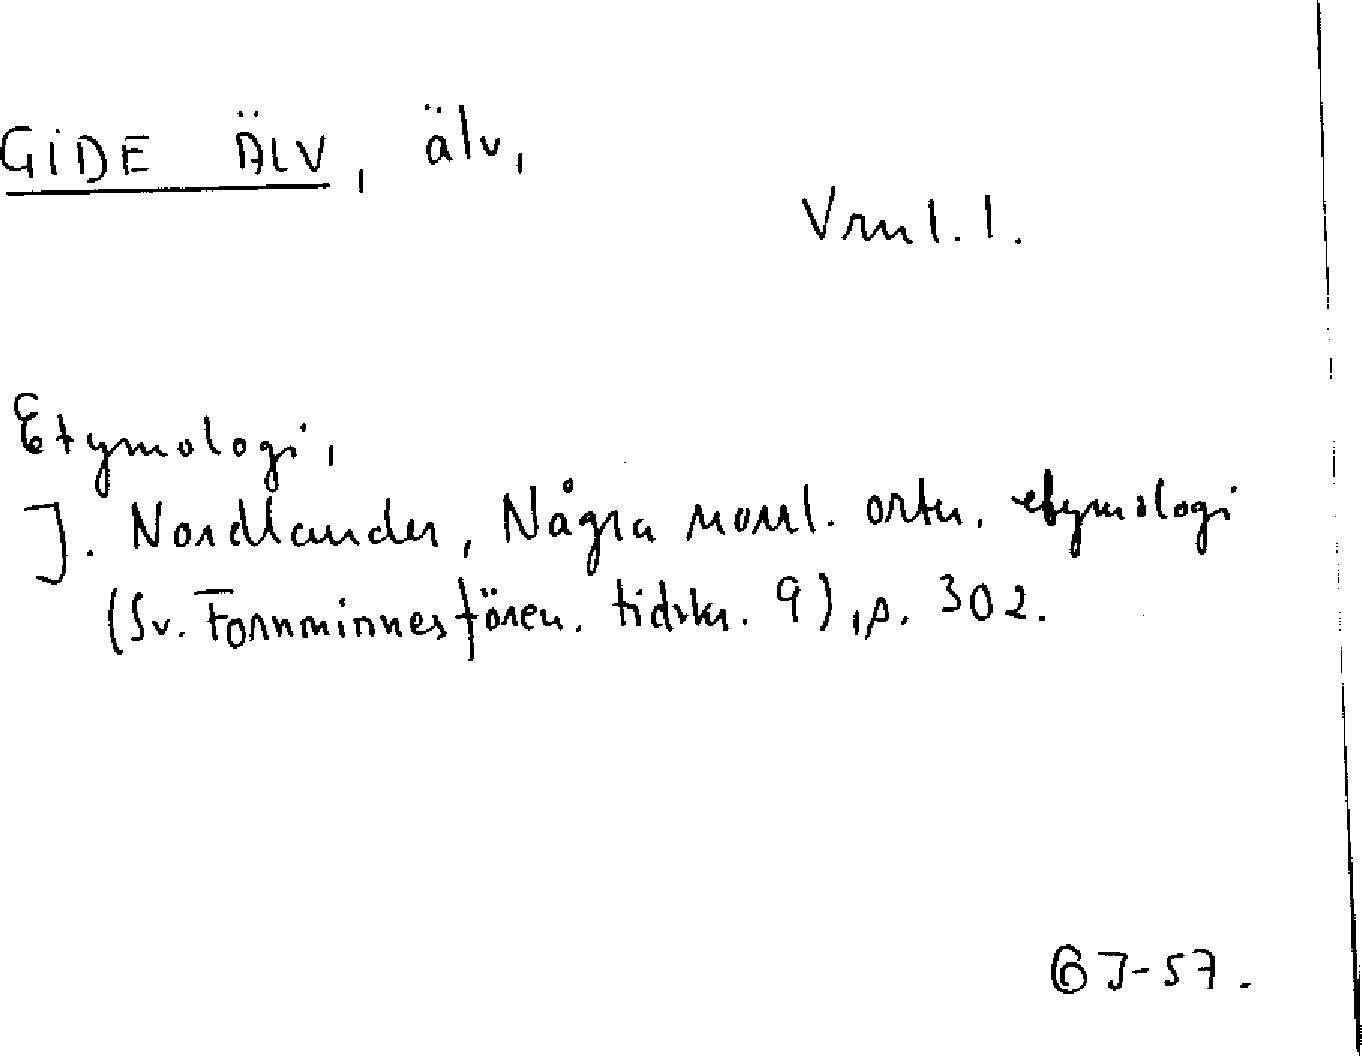 GIDE ÄLV, älv,
Vrml. l.
Etymologi,
J. Nordlander, Några norrl. ortn. etymologi
(Sv. Fornminnesfören. tidskr. 9), p. 302.
GJ-57.